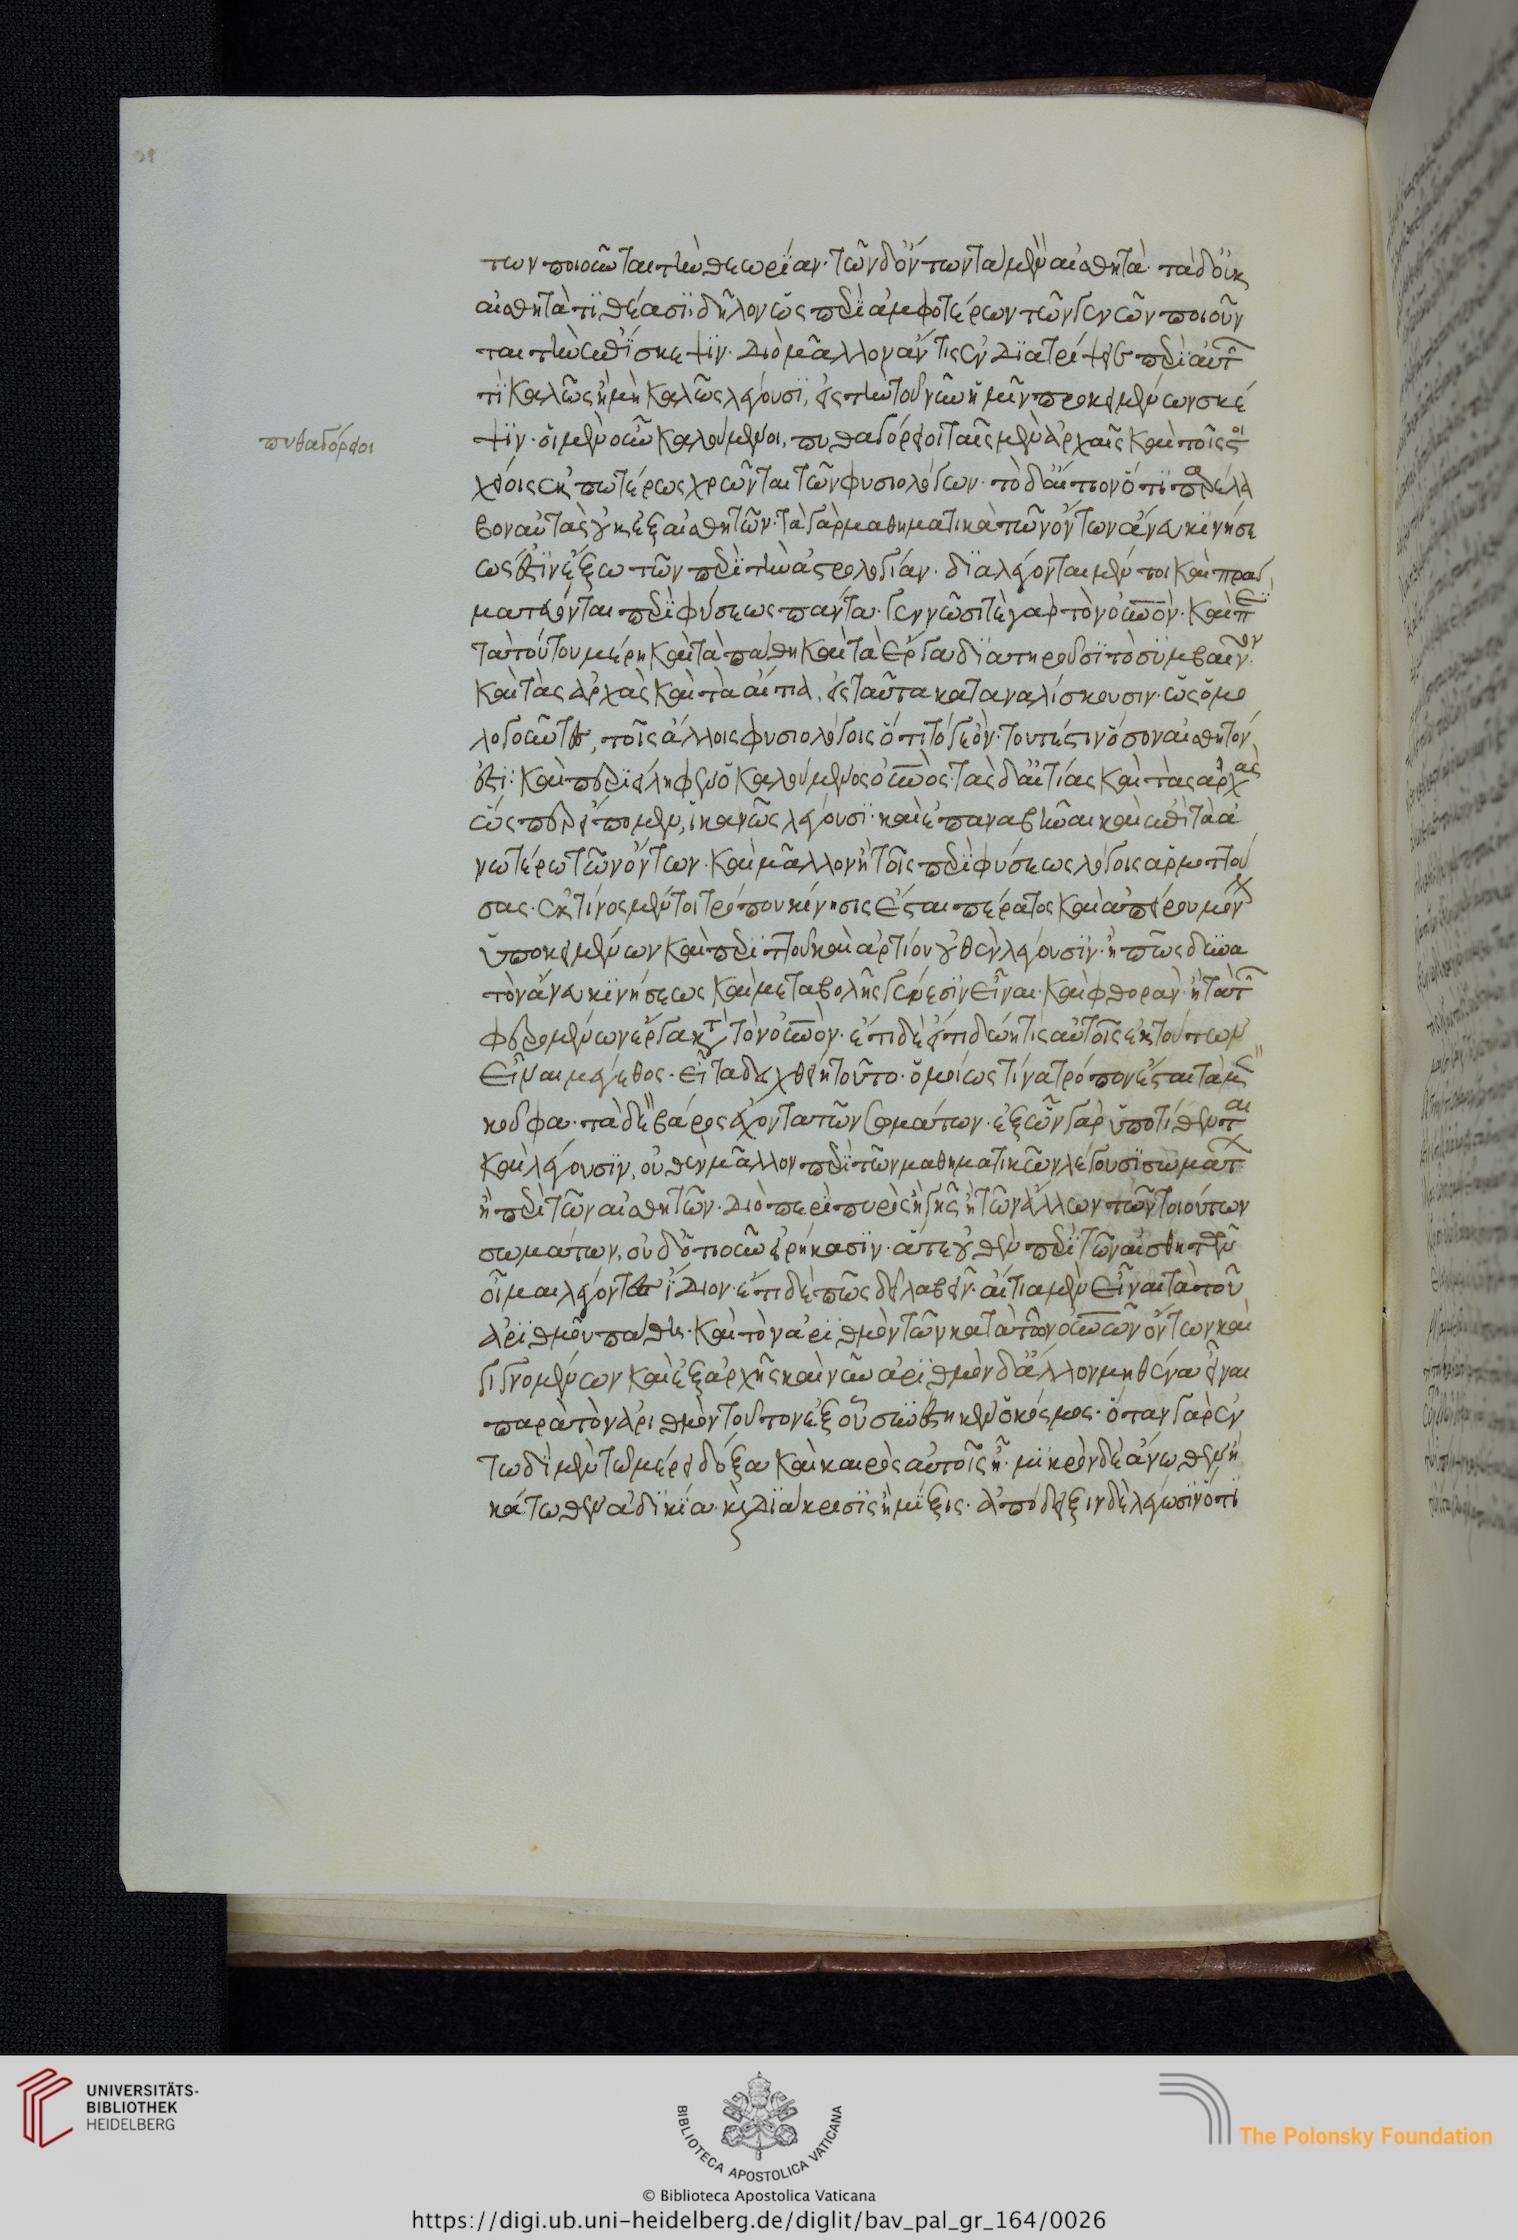 των ποιοῦνται τὴν θεωρίαν· τῶν δ' ὄντων τὰ μὲν αἰσθητὰ· τὰ δ' οὐκ
αἰσθητὰ τιθέασι· δῆλον ὡς περὶ ἀμφοτέρων τῶν γενῶν ποιοῦν
ται τὴν ἐπίσκεψιν. Διὸ μᾶλλον ἄν τις ἐνδιατρίψει περὶ αὐτῶν
τί καλῶς ἢ μὴ καλῶς λέγουσι, εἰς τὴν τοῦ νῦν ἡμῖν προκειμένων σκέ
πυθαγόρειοι
ψιν· οἱ μὲν οὖν καλούμενοι, πυθαγόρειοι ταῖς μὲν ἀρχαῖς καὶ τοῖς στοι
χείοις ἐκτοπωτέρως χρῶνται τῶν φυσιολόγων· τὸ δ' αἴτιον ὅτι παρέλα
βον αὐτὰς οὐκ ἐξ αἰσθητῶν· τὰ γὰρ μαθηματικὰ τῶν ὄντων ἄνευ κινήσε
ώς ἐστιν ἔξω τῶν περὶ τὴν ἀστρολογίαν· διαλέγονται μέντοι καὶ πραγ
ματεύονται περὶ φύσεως πάντα· γεννῶσί τε γὰρ τὸν οὐρανὸν· καὶ περὶ
τὰ τούτου μέρη καὶ τὰ πάθη καὶ τὰ ἔργα διατηροῦσι τὸ συμβαῖνον·
καὶ τὰς ἀρχὰς καὶ τὰ αἴτια, εἰς ταῦτα καταναλίσκουσιν· ὡς ὁμο
λογοῦντες, τοῖς ἄλλοις φυσιολόγοις ὅτι τό γε ὂν· τοῦτ' ἔστιν ὅσον αἰσθητόν
ἐστι· καὶ περιείληφεν ὁ καλούμενος οὐρανὸς· τὰς δ' αἰτίας καὶ τὰς ἀρχὰς
ὥσπερ εἴπομεν, ἱκανῶς λέγουσι· καὶ ἐπαναβῆναι καὶ ἐπὶ τὰ ἀ
νωτέρω τῶν ὄντων· καὶ μᾶλλον ἢ τοῖς περὶ φύσεως λόγοις ἁρμοττού
σας· ἐκ τίνος μέντοι τρόπου κίνησις ἔσται πέρατος καὶ ἀπείρου μόνων
ὑποκειμένων καὶ περιττοῦ καὶ ἀρτίου οὐθὲν λέγουσιν· ἢ πῶς δυνα
τὸν ἄνευ κινήσεως καὶ μεταβολῆς γένεσιν εἶναι· καὶ φθορὰν· ἢ τὰ τῶν
φερομένων ἔργα κατὰ τὸν οὐρανὸν· ἔτι δὲ εἴτε δῴη τις αὐτοῖς ἐκ τούτων
εἶναι μέγεθος· εἴτα δειχθείη τοῦτο· ὁμοίως τίνα τρόπον ἔσται τὰ μὲν
κοῦφα· τὰ δὲ βάρος ἔχοντα τῶν σωμάτων· ἐξ ὧν γὰρ ὑποτίθενται
καὶ λέγουσιν, οὐθὲν μᾶλλον περὶ τῶν μαθηματικῶν λέγουσι σωμάτων
ἢ περὶ τῶν αἰσθητῶν· Διὸ περὶ πυρὸς ἢ γῆς ἢ τῶν ἄλλων τῶν τοιούτων
σωμάτων, οὐδ' ὁτιοῦν εἰρήκασιν· ἅτε οὐθὲν περὶ τῶν αἰσθητῶν
οἶμαι λέγοντες ἴδιον· ἔτι δὲ πῶς δεῖ λαβεῖν· αἴτια μὲν εἶναι τὰ τοῦ
ἀριθμοῦ πάθη· καὶ τὸν ἀριθμὸν τῶν κατὰ τὸν οὐρανὸν ὄντων καὶ
γιγνομένων καὶ ἐξ ἀρχῆς καὶ νῦν ἀριθμὸν δ' ἄλλον μηθένα εἶναι
παρὰ τὸν ἀριθμὸν τοῦτον ἐξ οὗ συνέστηκεν ὁ κόσμος· ὅταν γὰρ ἐν
τωδὶ μὲν τῷ μέρει δόξα καὶ καιρὸς αὐτοῖς ἦ· μικρὸν δὲ ἄνωθεν ἢ
κάτωθεν ἀδικία· καὶ διάκρισις ἢ μίξις· ἀπόδειξιν δὲ λέγωσιν ὅτι
UNIVERSITÄTS-
BIBLIOTHEK
HEIDELBERG
BIBLIOTECA APOSTOLICA VATICANA
The Polonsky Foundation
© Biblioteca Apostolica Vaticana
https://digi.ub.uni-heidelberg.de/diglit/bav_pal_gr_164/0026